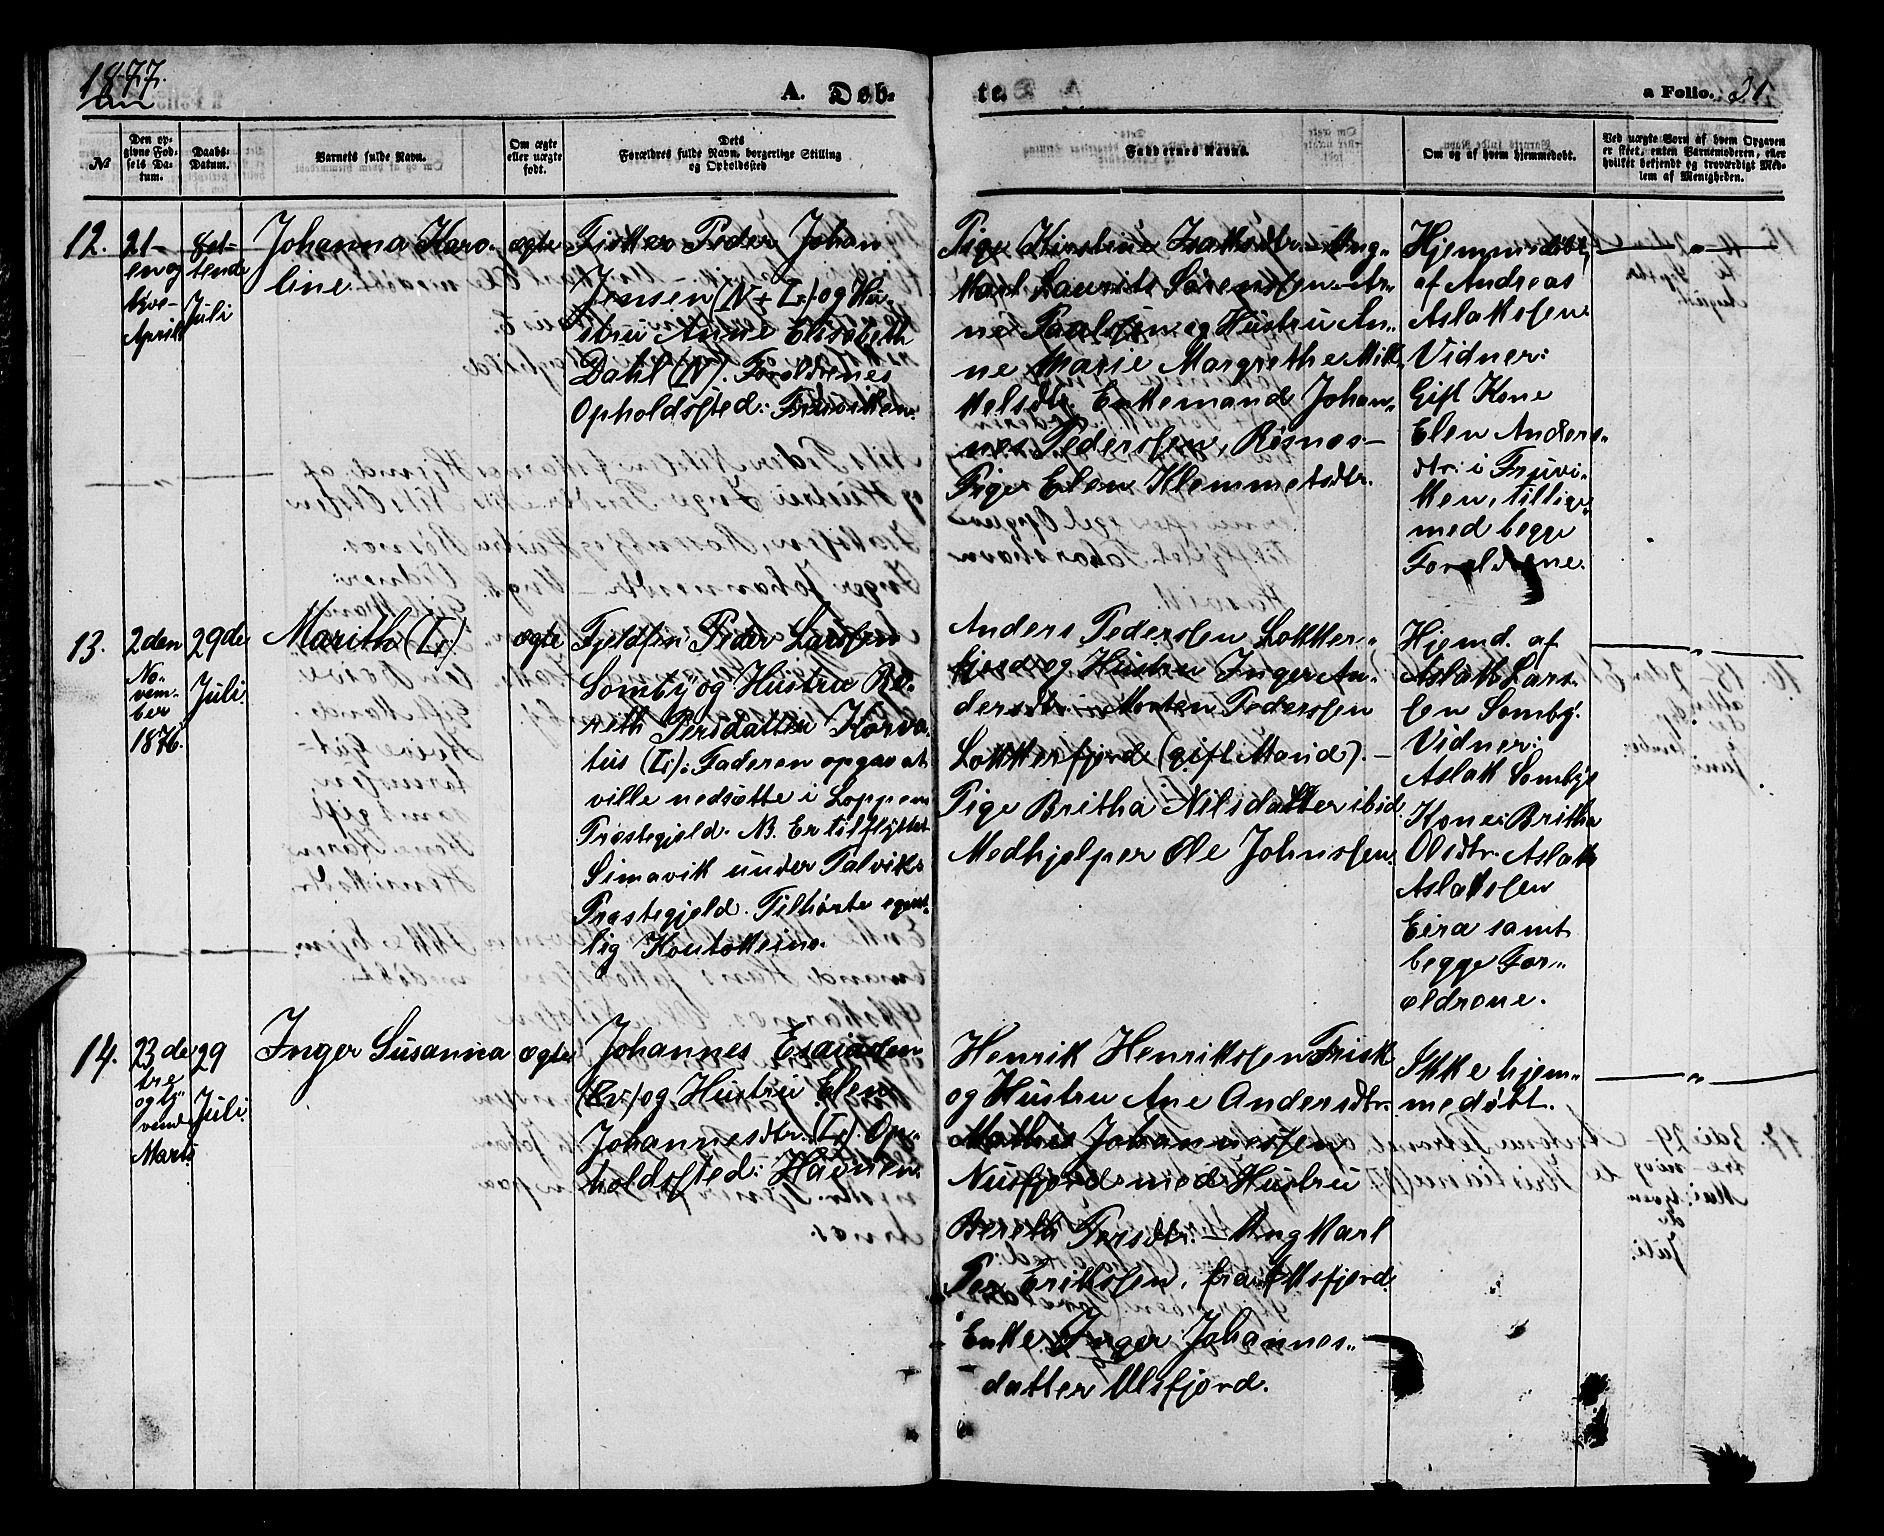 1877.
A. Døb-
te.
a Folio. 31
№
Den op-
givne Fød-
sels Da-
tum.
Daabs-
Datum.
Barnets fulde Navn.
Om ægte
eller uægte
født.
Dets
Forældres fulde Navn, borgerlige Stilling
og Opholdssted
Faddernes Navne.
Om og af hvem hjemmedøbt.
Ved uægte Børn af hvem Opgaven
er skeet, enten Barnemoderen, eller
hvilket bekjendt og troværdigt Med-
lem af Menigheden.
12.
21-
en og
tyve-
April
Juli
Johanna Karo-
line
ægte
Fisker Peder Johan
Jensen (N + L) og Hu-
stru Anne Elisabeth
Dahl (N). Forældrenes
Opholdssted: Fruviken.
Pige Kirstine Isaksdtr. - Ung-
karl Laurits Sørensen - Ar-
ne Paulsen og Hustru An-
ne Marie Margrethe Mik-
kelsdtr. Enkemand Johan-
nes Pedersen, Risnes-
Pige Elen Klemmetsdtr.
Hjemmedøbt
af Andreas
Aslaksen
Vidner:
Gift Kone
Elen Anders-
dtr. i Fruvi-
ken, tillige
med begge
Forældrene.
13.
2den
No-
vem-
ber
1876.
29de
Juli
Marith (L).
ægte
Fjeldfin Peder Larsen
Somby og Hustru Be-
reth Persdatter Korva-
tus (L). Faderen opgav at
ville nedsætte i Loppen
Præstegjeld. NB. Er tilflyttet
Simavik under Talviks
Præstegjeld. Tilhørte egent-
lig Koutokeino.
Anders Pedersen Lokker-
fjord og Hustru Inger An-
dersdtr. - Morten Pedersen
Lokkerfjord (gift Mand). -
Pige Britha Nilsdatter ibid.
Medhjelper Ole Johnsen.
Hjemd. af
Aslak Lar-
sen Somby.
Vidner:
Aslak Sombys
Kone: Britha
Olsdtr. Aslak
Aslaksen
Eira samt
begge For-
ældrene.
14.
23de
tre
og ty-
vende
Marts
29
Juli.
Inger Susanna
ægte
Johannes Esaiasen
(Lv) og Hustru Elen
Johannesdtr. (L). Op-
holdssted: Havnen
Henrik Henriksen Frisk
og Hustru Ane Andersdtr.
Mathis Johannessen
Nusfjord med Hustru
Bereth Persdtr. - Ungkarl
Per Eriksen, fra
Enke Inger Johannes-
datter Ulsfjord.
Ikke hjem-
medøbt.